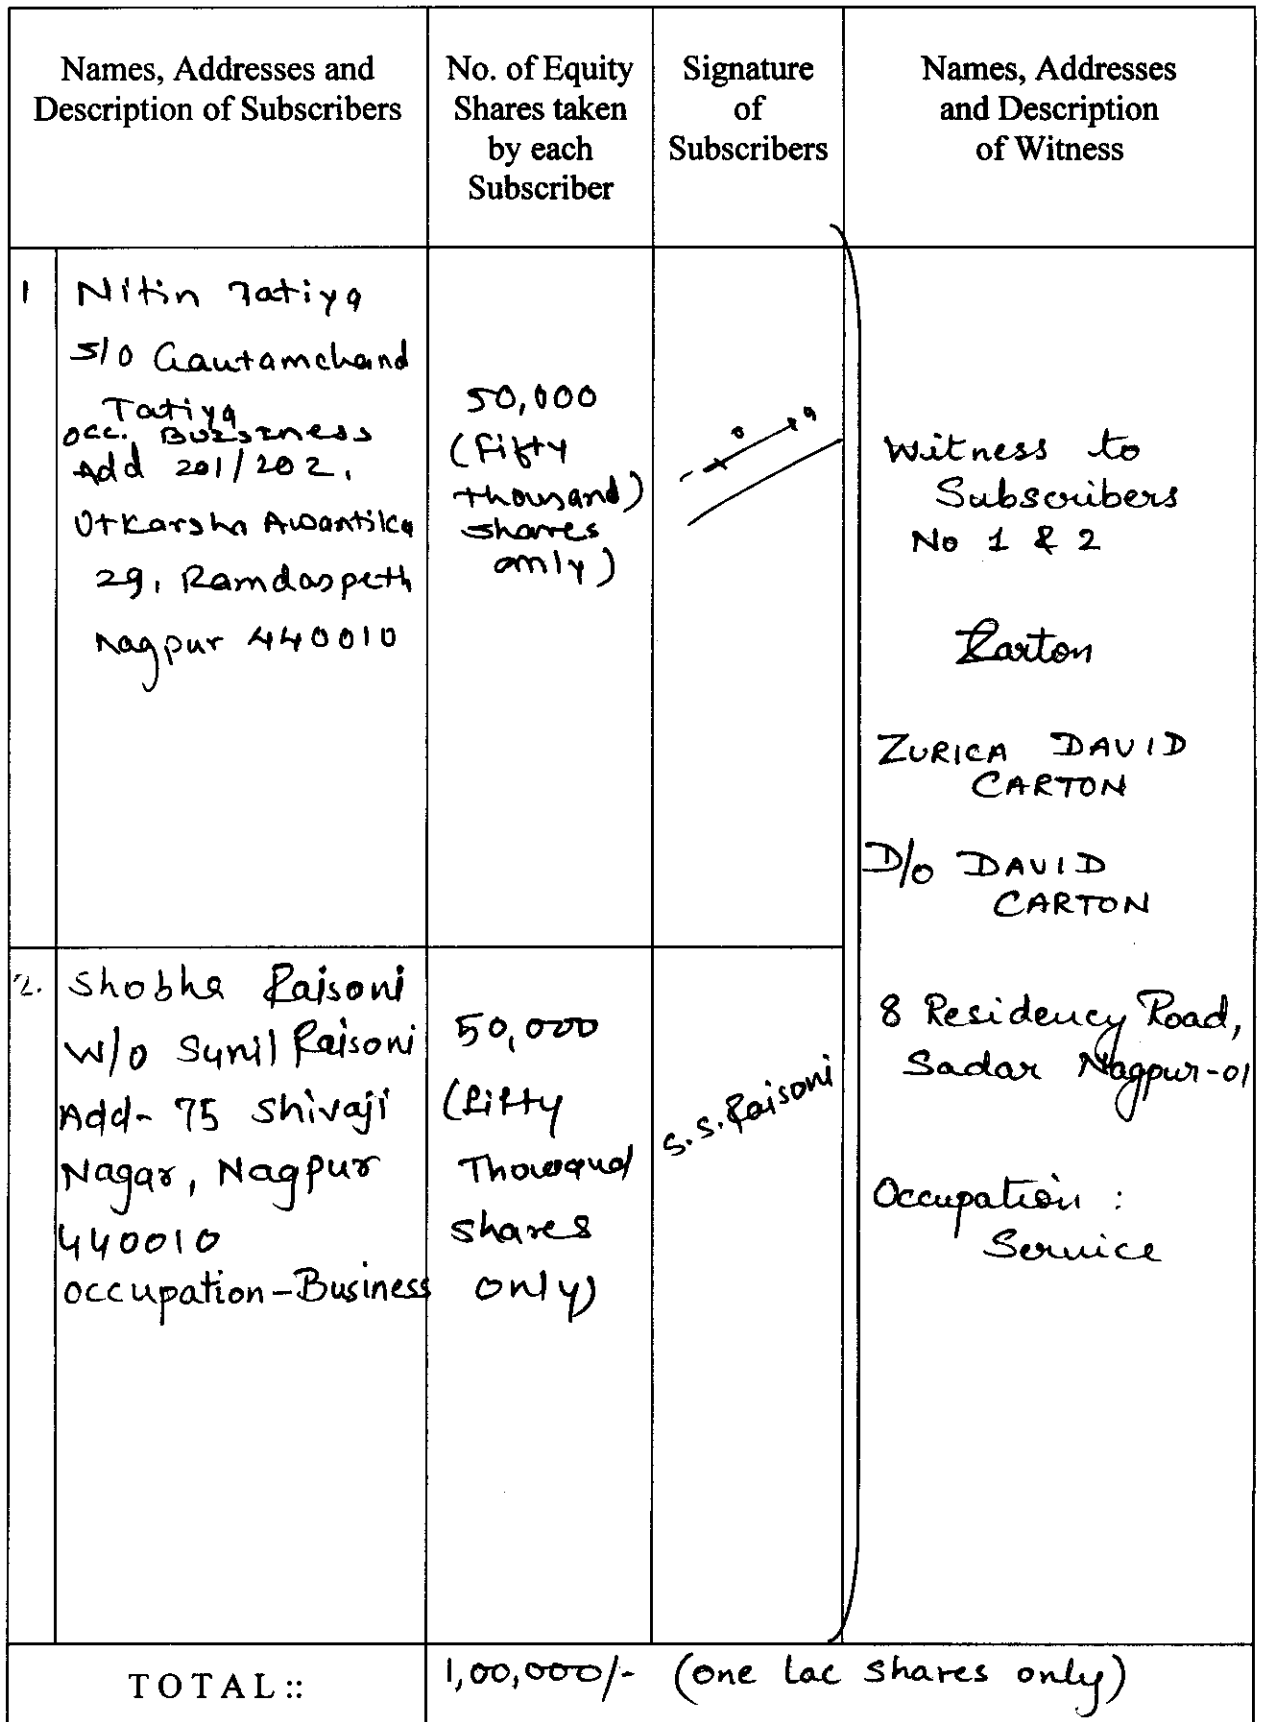 Names, Addresses and
Description of Subscribers
No. of Equity
Shares taken
by each
Subscriber
Signature
of
Subscribers
Names, Addresses
and Description
of Witness
1 Nitin Tatiya
S/o Gautamchand
Tatiya
occ. Bussiness
Add 201/202,
Utkarsha Awantika
29, Ramdaspeth
Nagpur 440010
50,000
(Fifty
thousand)
shares
only)
Witness to
Subscribers
No 1 & 2
Carton
ZURICA DAVID
CARTON
D/o DAVID
CARTON
8 Residency Road,
Sadar Nagpur-01
Occupation :
Service
2. Shobha Raisoni
W/o Sunil Raisoni
Add- 75 Shivaji
Nagar, Nagpur
440010
occupation-Business
50,000
(Fifty
Thousand
shares
only)
S.S. Raisoni
TOTAL::
1,00,000/- (one lac shares only)